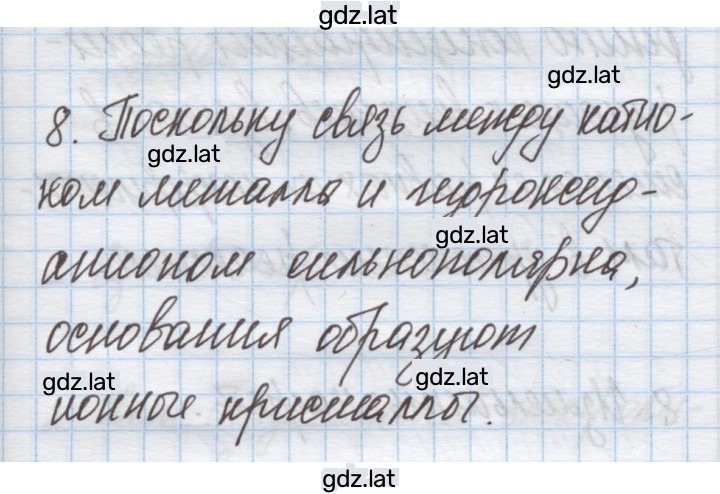 gdz.lat
gdz.lat
8. Поскольку связь между катио-
gdz.lat
ном металла и гидроксид-
gdz.lat
анионом сильнополярна,
основания образуют
gdz.lat
gdz.lat
ионные кристаллы.
gdz.lat